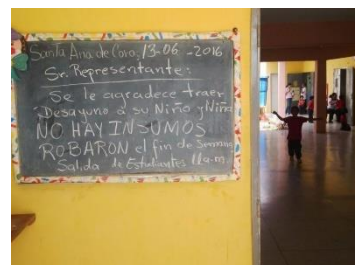 Santa Ana de Coro; 13-06-2016
Sr. Representante:
Se le agradece traer
Desayuno a su Niño y Niña
NO HAY INSUMOS
ROBARON el fin de Semana
Salida de Estudiantes 11a.m.